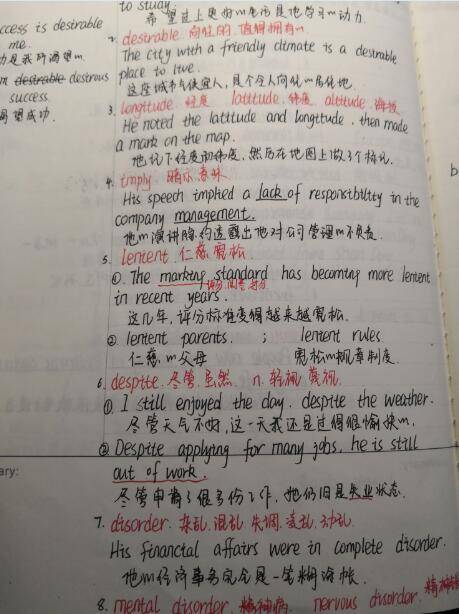 to study.
希望过上更好的生活是他学习的动力.
ccess is desirable
me.
力是我所渴望的
desirable destrous
success.
渴望成功.
2. desirable 向往的. 值得拥有的
The city with a friendly climate is a desirable
place to live.
这座城市气候宜人，是个令人向往的居住地.
3. longitude 经度 latitude. 纬度 altitude. 海拔
He noted the latitude and longitude, then made
a mark on the map.
他记下经度和纬度，然后在地图上做了个标记.
4. imply 暗示 意味
His speech implied a lack of responsibility in the
company management.
他的演讲隐约透露出他对公司管理的不负责.
5. lenient. 仁慈 宽松
① The marking standard has becoming more lenient
in recent years.
评分 阅卷 打分
这几年，评分标准变得越来越宽松.
② lenient parents. ; lenient rules
仁慈的父母 宽松的规章制度
6. despite. 尽管. 虽然. n. 轻视. 蔑视.
① I still enjoyed the day, despite the weather.
尽管天气不好，这一天我还是过得很愉快的.
② Despite applying for many jobs, he is still
out of work.
ary:
尽管申请了很多份工作，他仍旧是失业状态.
7. disorder. 杂乱. 混乱. 失调. 凌乱. 动乱
His financial affairs were in complete disorder.
他的经济事务完全是一笔糊涂帐.
8. mental disorder. 精神病 nervous disorder.